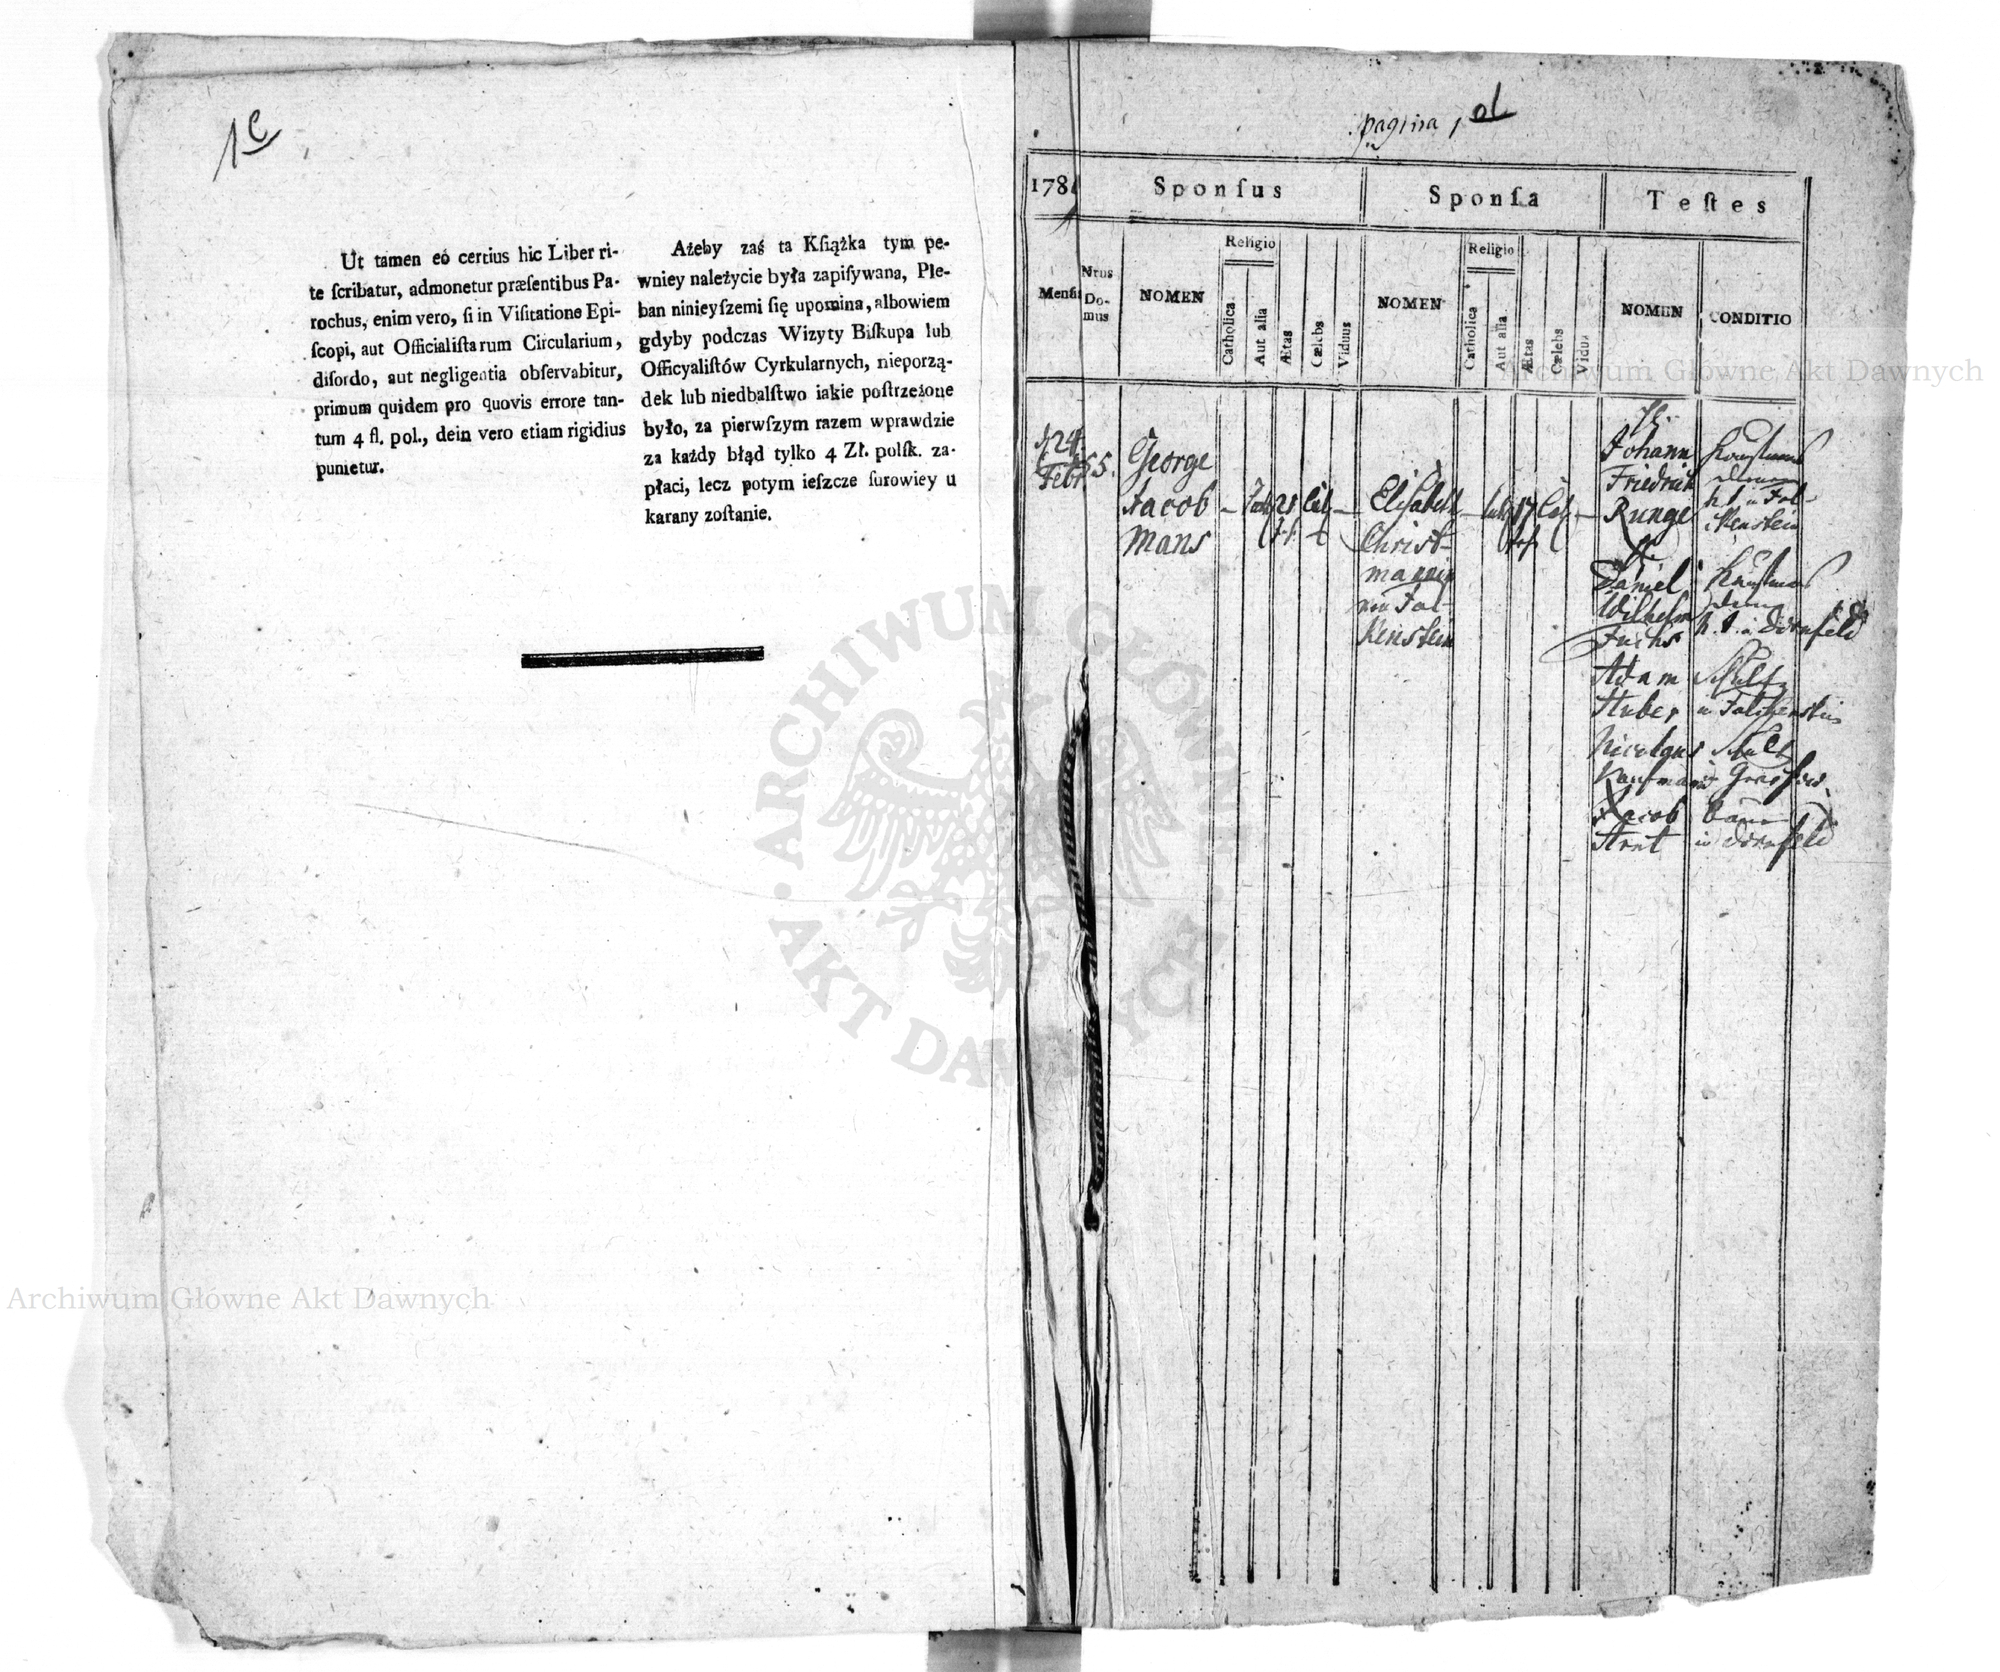 1e
Ut tamen eó certius hic Liber ri-
te ſcribatur, admonetur præſentibus Pa-
rochus, enim vero, ſi in Viſitatione Epi-
ſcopi, aut Officialiſtarum Circularium,
diſordo, aut negligentia obſervabitur,
primum quidem pro quovis errore tan-
tum 4 fl. pol., dein vero etiam rigidius
punietur.
Ażeby zaś ta Kſiążka tym pe-
wniey należycie była zapiſywana, Ple-
ban ninieyſzemi ſię upomina, albowiem
gdyby podczas Wizyty Biſkupa lub
Officyaliſtów Cyrkularnych, nieporzą-
dek lub niedbalſtwo iakie poſtrzeżone
było, za pierwſzym razem wprawdzie
za każdy błąd tylko 4 Zł. polſk. za-
płaci, lecz potym ieſzcze ſurowiey u
karany zoſtanie.
pagina 1
178
Sponſus
Sponſa
Teſtes
Menſis
Nrus
Do-
mus
NOMEN
Religio
Catholica
Aut alia
Ætas
Cœlebs
Viduus
NOMEN
Religio
Catholica
Aut alia
Ætas
Cœlebs
Vidua
NOMEN
CONDITIO
24
Febr.
55.
George
Jacob
Mans
21
Elisabeth
Christ-
mannin
von Fal-
kenstein
17
Johann
Friedrich
Runge
Daniel
Wilhelm
Fuchs
Adam
Huber
Nicolaus
Kaufmann
Jacob
Arnt
Schultz
in Falckenstein
Schultz
Bauer
in Dornfeld
ARCHIWUM GŁÓWNE AKT DAWNYCH
Archiwum Główne Akt Dawnych
Archiwum Główne Akt Dawnych